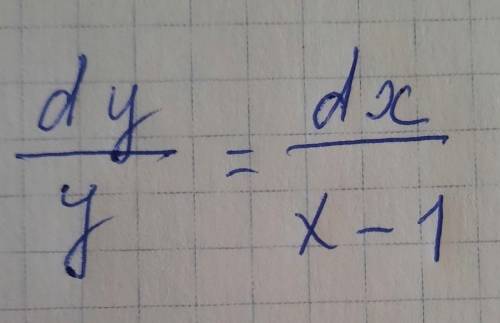 dy/y = dx/(x-1)